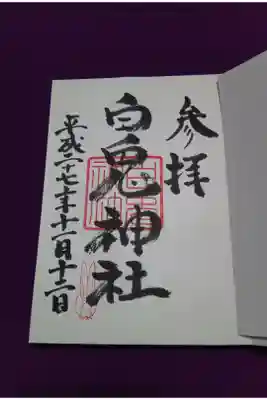 参拝
白兎神社
平成二十七年十一月十二日